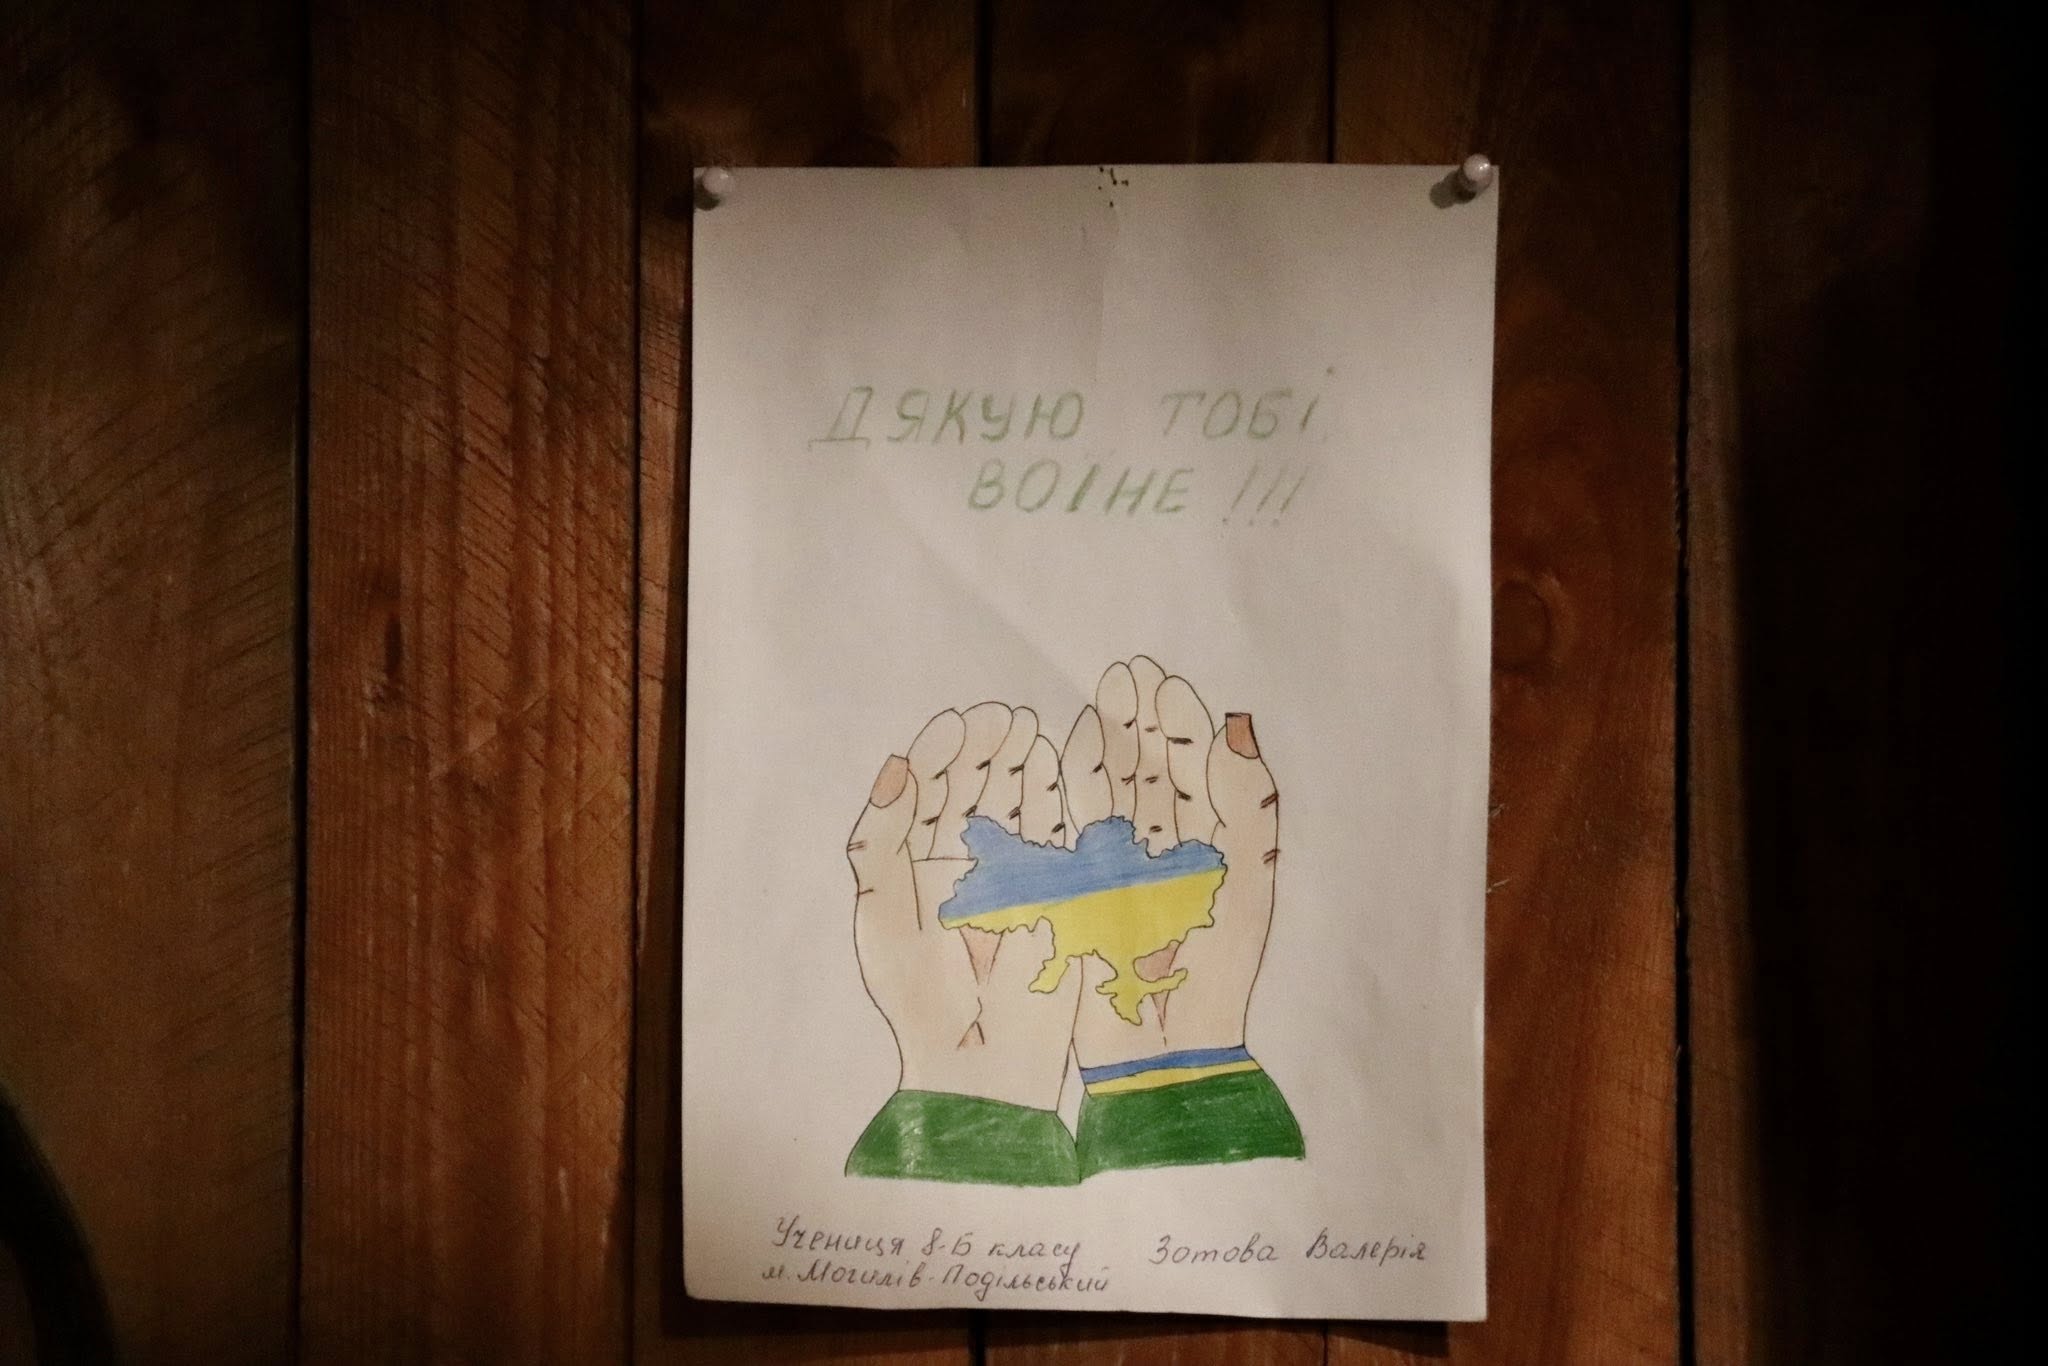 ДЯКУЮ ТОБІ
ВОЇНЕ!!!
Учениця 8-Б класу Зотова Валерія
м. Могилів-Подільський